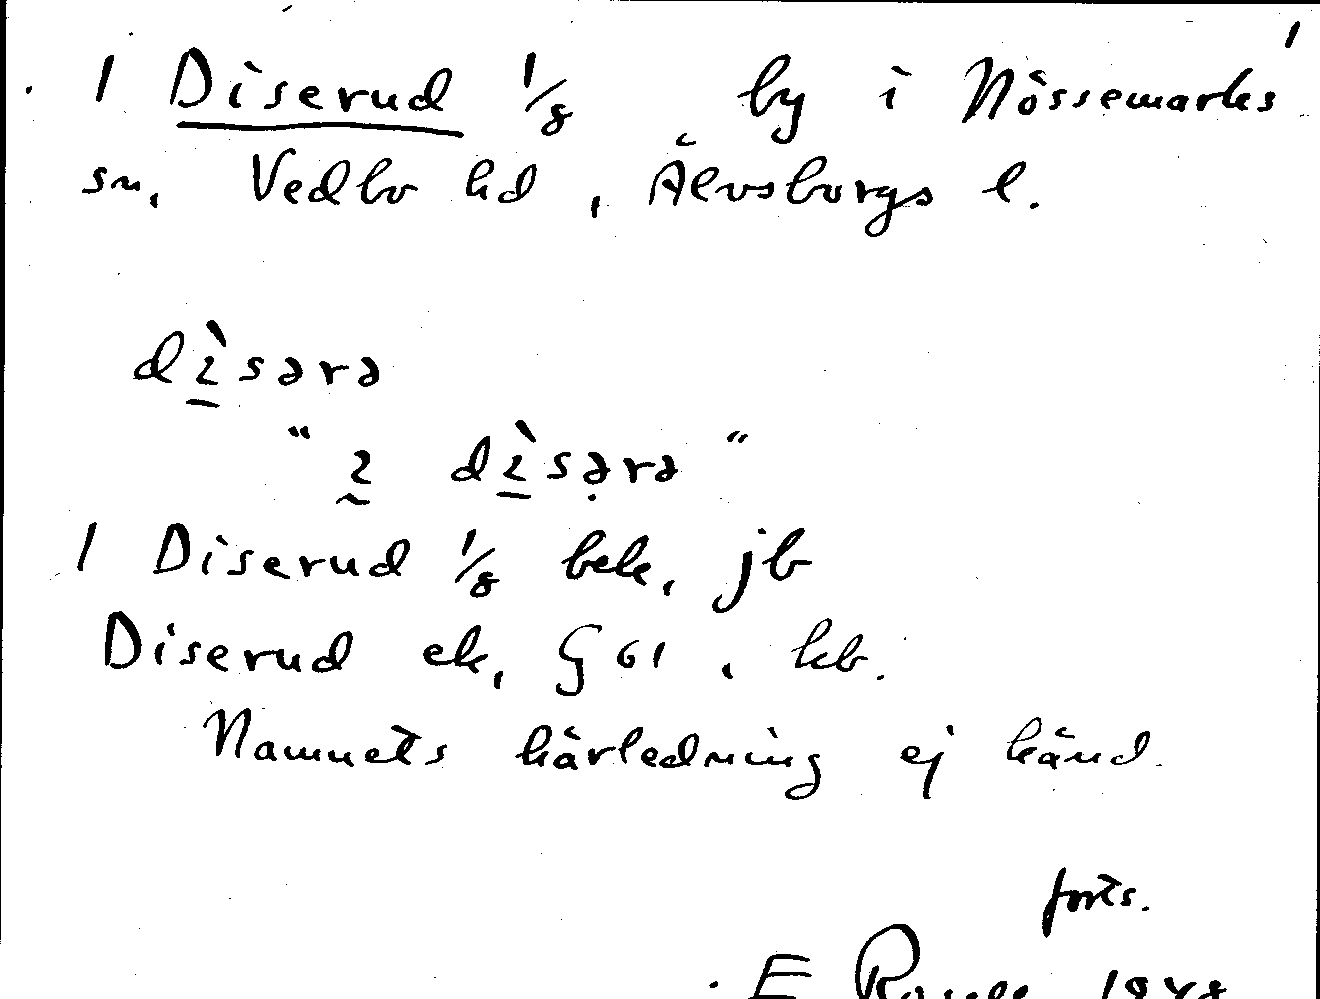 1
1 Diserud 1/8 by i Nössemarks
sn, Vedbo hd, Älvsborgs l.
dìsərə
"ı dìsərə"
1 Diserud 1/8 bek, jb
Diserud ek, G 61, kb.
Namnets härledning ej känd.
forts.
E 1948